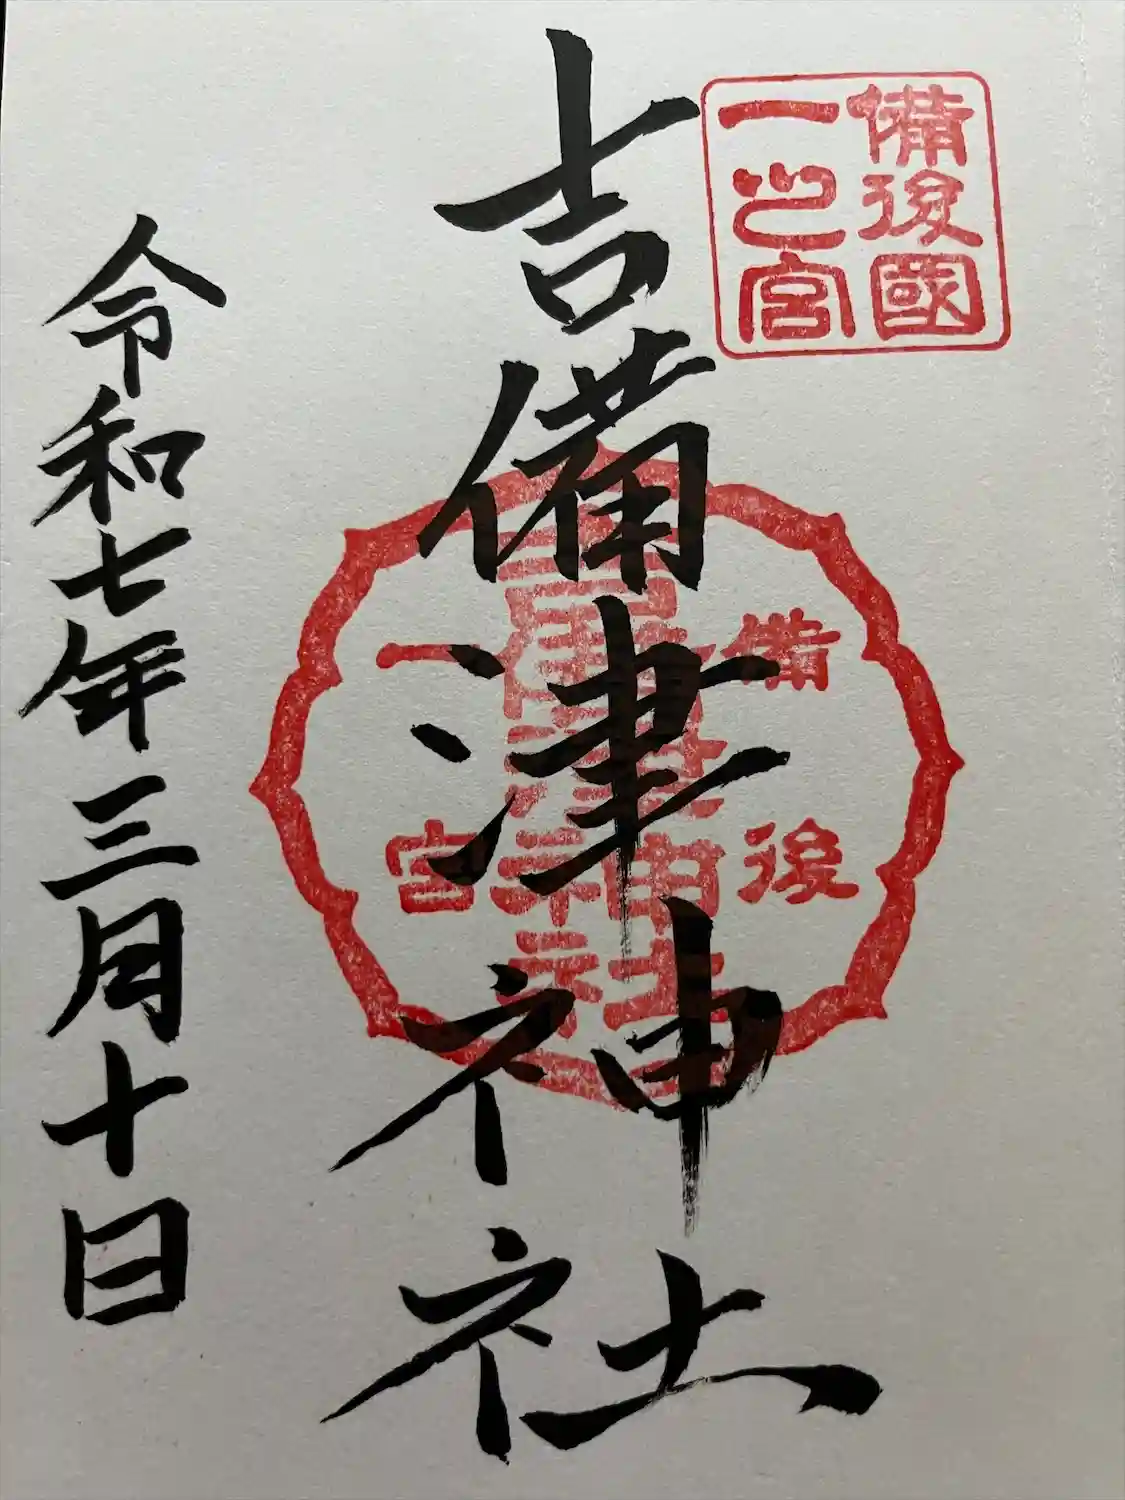 備後國
一之宮
吉備津神社
備後
吉備津神社
一宮
令和七年三月十日